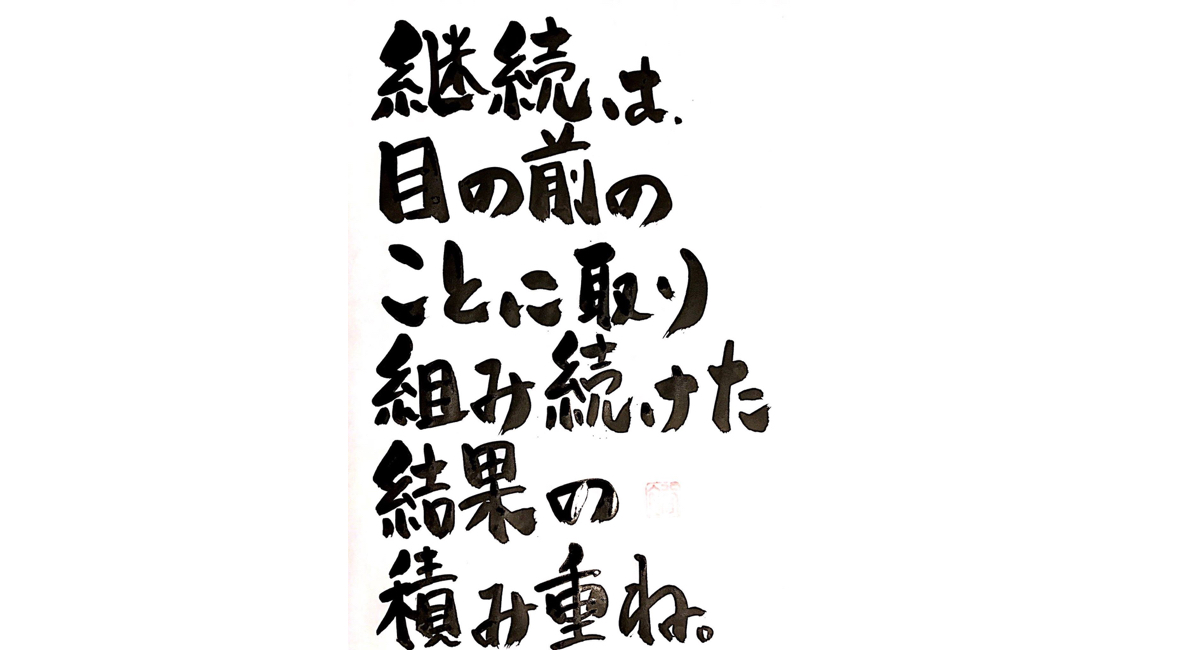 継続は、
目の前の
ことに取り
組み続けた
結果の
積み重ね。